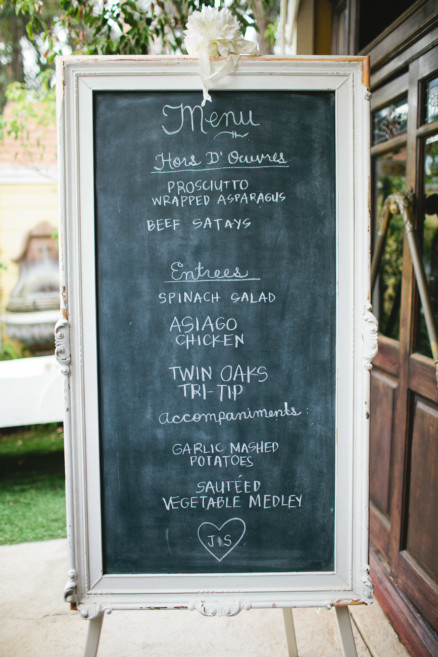 Menu
Hors D' Oeuvres
PROSCIUTTO
WRAPPED ASPARAGUS
BEEF SATAYS
Entrees
SPINACH SALAD
ASIAGO
CHICKEN
TWIN OAKS
TRI-TIP
accompaniments:
GARLIC MASHED
POTATOES
SAUTÉED
VEGETABLE MEDLEY
J+S